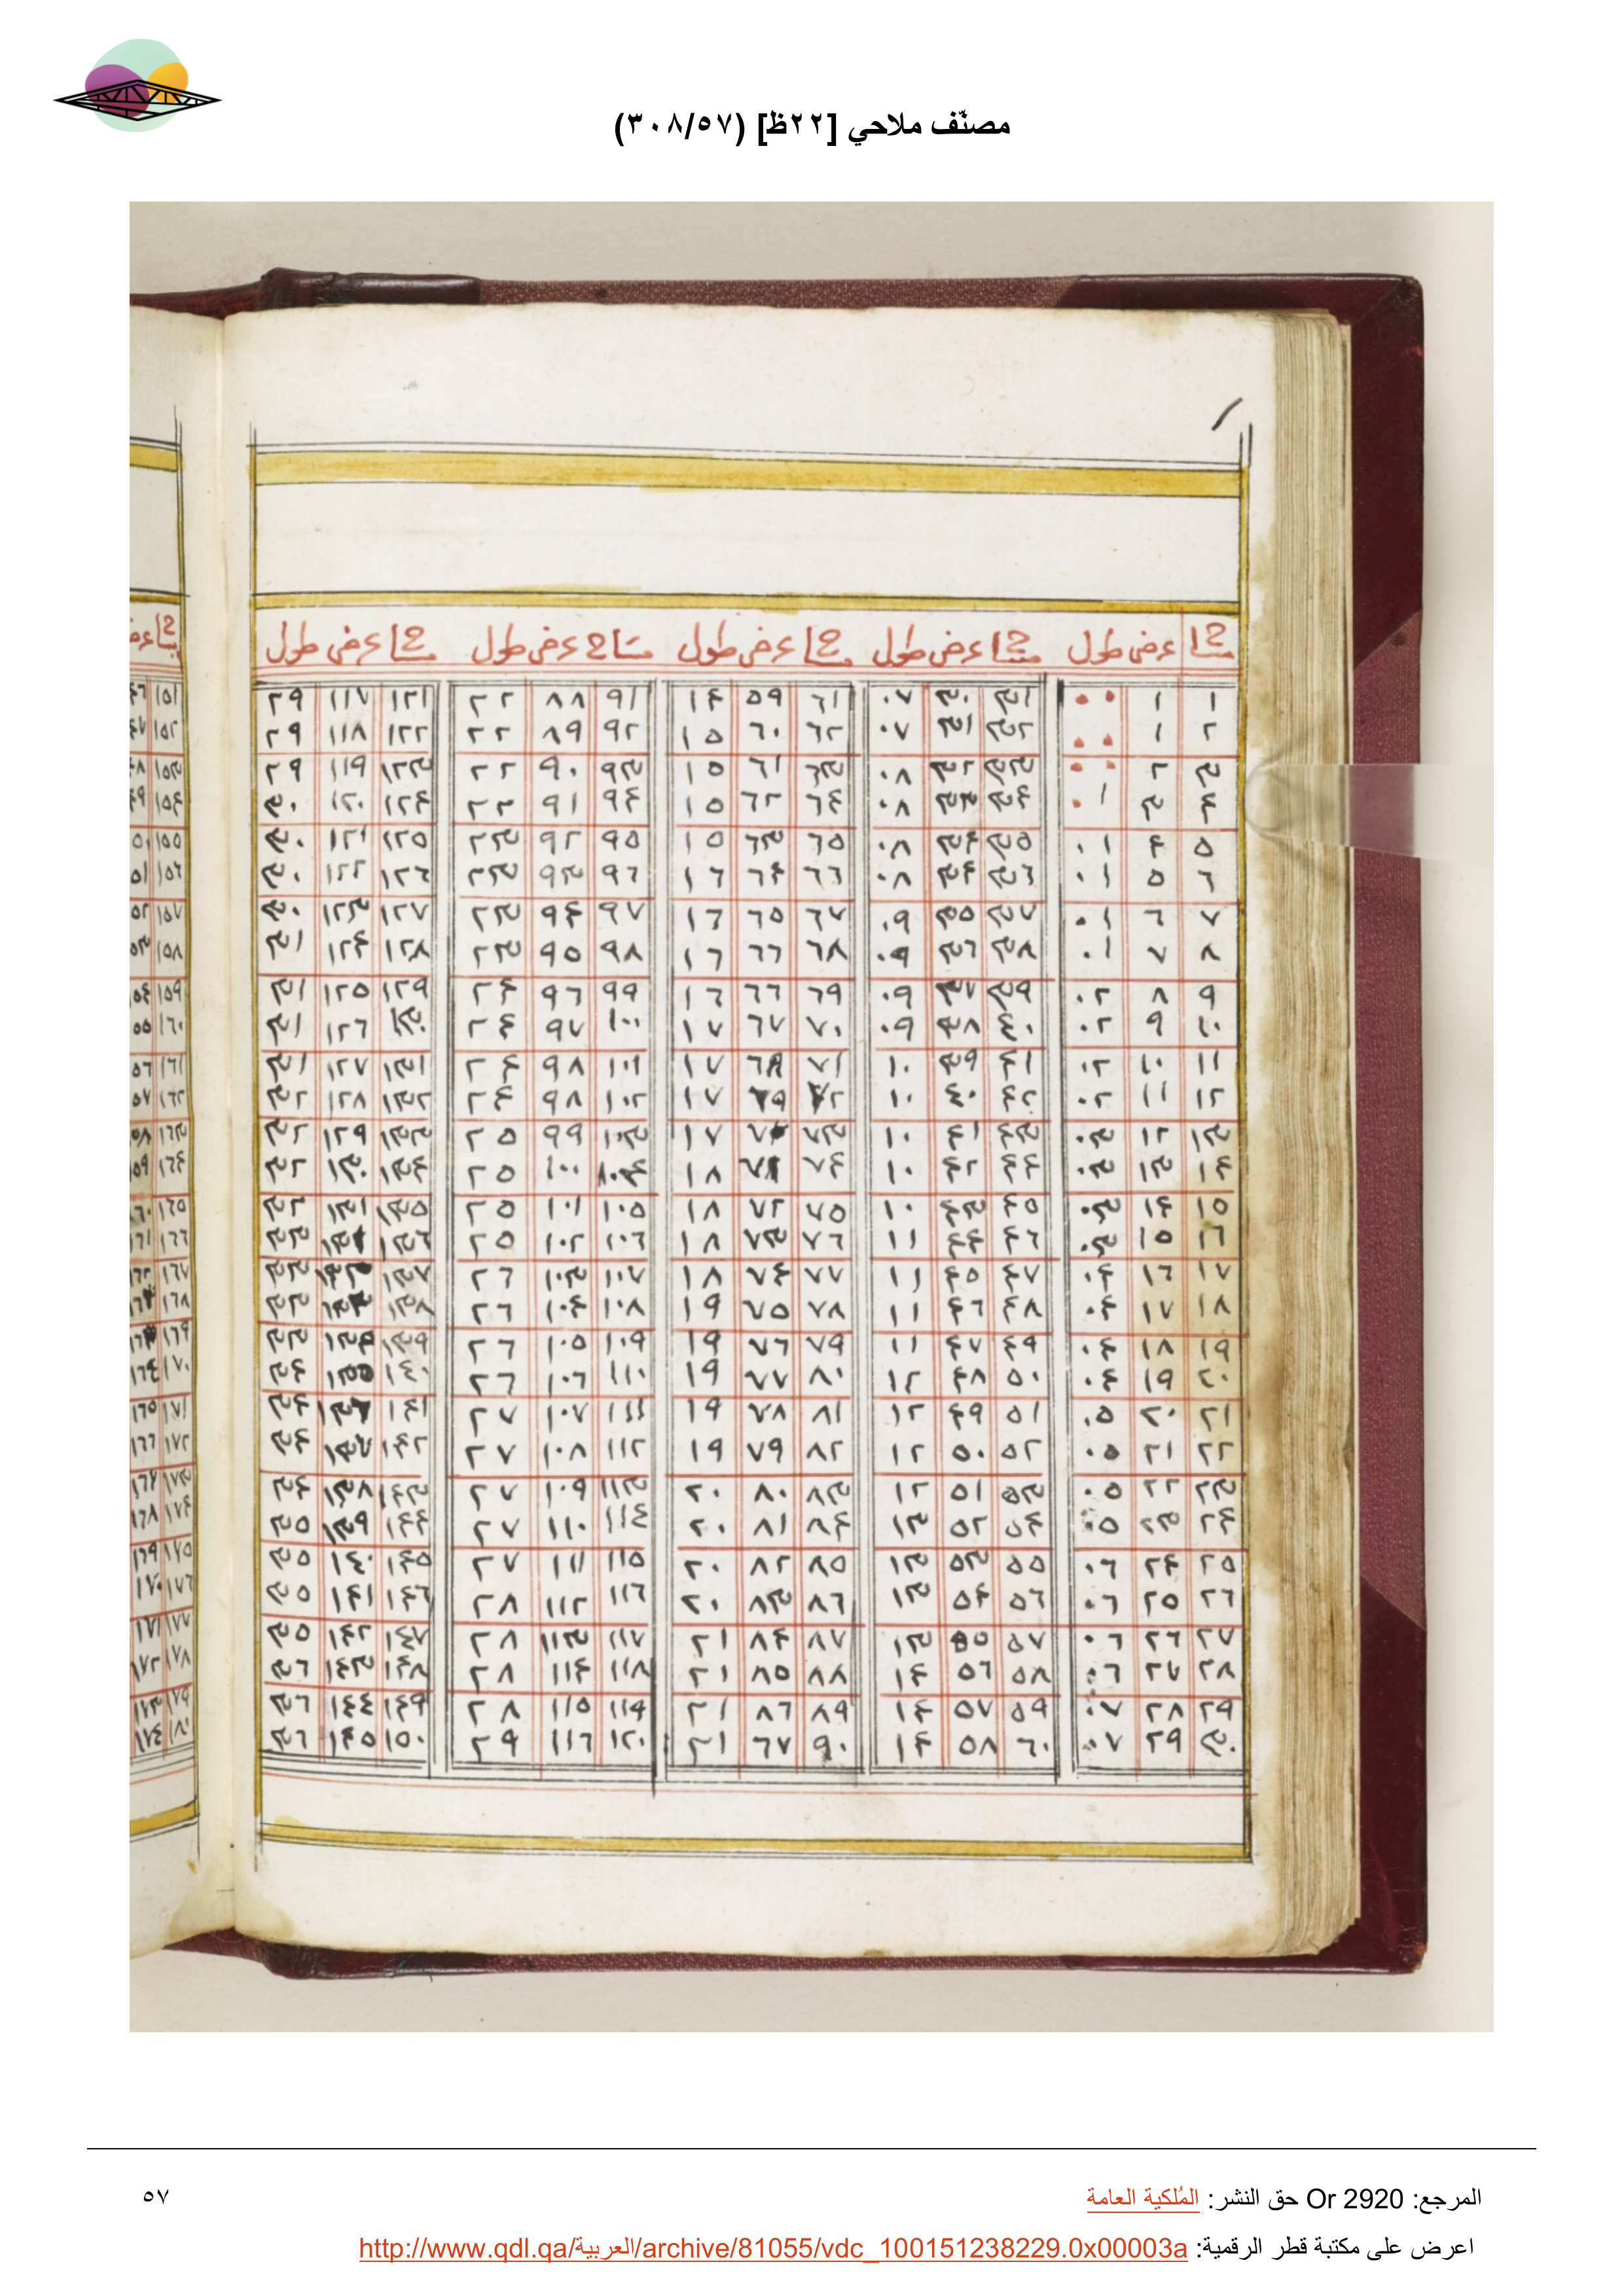 مصنّف ملاحي [٢٢ظ] (٣٠٨/٥٧)
مساح عرض طول مساح عرض طول مساح عرض طول مساح عرض طول مساح عرض طول
١ ١ ٠٠ ٣١ ٣٠ ٠٧ ٦١ ٥٩ ١٤ ٩١ ٨٨ ٢٢ ١٢١ ١١٧ ٢٩ ١٥١
٢ ١ ٠٠ ٣٢ ٣١ ٠٧ ٦٢ ٦٠ ١٥ ٩٢ ٨٩ ٢٢ ١٢٢ ١١٨ ٢٩ ١٥٢
٣ ٢ ٠٠ ٣٣ ٣٢ ٠٨ ٦٣ ٦١ ١٥ ٩٣ ٩٠ ٢٢ ١٢٣ ١١٩ ٢٩ ١٥٣
٤ ٣ ٠١ ٣٤ ٣٣ ٠٨ ٦٤ ٦٢ ١٥ ٩٤ ٩١ ٢٣ ١٢٤ ١٢٠ ٣٠ ١٥٤
٥ ٤ ٠١ ٣٥ ٣٤ ٠٨ ٦٥ ٦٣ ١٥ ٩٥ ٩٢ ٢٣ ١٢٥ ١٢١ ٣٠ ١٥٥
٦ ٥ ٠١ ٣٦ ٣٤ ٠٨ ٦٦ ٦٤ ١٦ ٩٦ ٩٣ ٢٣ ١٢٦ ١٢٢ ٣٠ ١٥٦
٧ ٦ ٠١ ٣٧ ٣٥ ٠٩ ٦٧ ٦٥ ١٦ ٩٧ ٩٤ ٢٣ ١٢٧ ١٢٣ ٣٠ ١٥٧
٨ ٧ ٠١ ٣٨ ٣٦ ٠٩ ٦٨ ٦٦ ١٦ ٩٨ ٩٥ ٢٣ ١٢٨ ١٢٤ ٣١ ١٥٨
٩ ٨ ٠٢ ٣٩ ٣٧ ٠٩ ٦٩ ٦٦ ١٦ ٩٩ ٩٦ ٢٤ ١٢٩ ١٢٥ ٣١ ١٥٩
١٠ ٩ ٠٢ ٤٠ ٣٨ ٠٩ ٧٠ ٦٧ ١٧ ١٠٠ ٩٧ ٢٤ ١٣٠ ١٢٦ ٣١ ١٦٠
١١ ١٠ ٠٢ ٤١ ٣٩ ١٠ ٧١ ٦٨ ١٧ ١٠١ ٩٨ ٢٤ ١٣١ ١٢٧ ٣١ ١٦١
١٢ ١١ ٠٢ ٤٢ ٤٠ ١٠ ٧٢ ٦٩ ١٧ ١٠٢ ٩٨ ٢٤ ١٣٢ ١٢٨ ٣٢ ١٦٢
١٣ ١٢ ٠٣ ٤٣ ٤١ ١٠ ٧٣ ٧٠ ١٧ ١٠٣ ٩٩ ٢٥ ١٣٣ ١٢٩ ٣٢ ١٦٣
١٤ ١٣ ٠٣ ٤٤ ٤٢ ١٠ ٧٤ ٧١ ١٨ ١٠٤ ١٠٠ ٢٥ ١٣٤ ١٣٠ ٣٢ ١٦٤
١٥ ١٤ ٠٣ ٤٥ ٤٣ ١٠ ٧٥ ٧٢ ١٨ ١٠٥ ١٠١ ٢٥ ١٣٥ ١٣١ ٣٢ ١٦٥
١٦ ١٥ ٠٣ ٤٦ ٤٤ ١١ ٧٦ ٧٣ ١٨ ١٠٦ ١٠٢ ٢٥ ١٣٦ ١٣١ ٣٣ ١٦٦
١٧ ١٦ ٠٤ ٤٧ ٤٥ ١١ ٧٧ ٧٤ ١٨ ١٠٧ ١٠٣ ٢٦ ١٣٧ ١٣٢ ٣٣ ١٦٧
١٨ ١٧ ٠٤ ٤٨ ٤٦ ١١ ٧٨ ٧٥ ١٩ ١٠٨ ١٠٤ ٢٦ ١٣٨ ١٣٣ ٣٣ ١٦٨
١٩ ١٨ ٠٤ ٤٩ ٤٧ ١١ ٧٩ ٧٦ ١٩ ١٠٩ ١٠٥ ٢٦ ١٣٩ ١٣٤ ٣٣ ١٦٩
٢٠ ١٩ ٠٤ ٥٠ ٤٨ ١٢ ٨٠ ٧٧ ١٩ ١١٠ ١٠٦ ٢٦ ١٤٠ ١٣٥ ٣٤ ١٧٠
٢١ ٢٠ ٠٥ ٥١ ٤٩ ١٢ ٨١ ٧٨ ١٩ ١١١ ١٠٧ ٢٧ ١٤١ ١٣٦ ٣٤ ١٧١
٢٢ ٢١ ٠٥ ٥٢ ٥٠ ١٢ ٨٢ ٧٩ ١٩ ١١٢ ١٠٨ ٢٧ ١٤٢ ١٣٧ ٣٤ ١٧٢
٢٣ ٢٢ ٠٥ ٥٣ ٥١ ١٢ ٨٣ ٨٠ ٢٠ ١١٣ ١٠٩ ٢٧ ١٤٣ ١٣٨ ٣٤ ١٧٣
٢٤ ٢٣ ٠٥ ٥٤ ٥٢ ١٣ ٨٤ ٨١ ٢٠ ١١٤ ١١٠ ٢٧ ١٤٤ ١٣٩ ٣٥ ١٧٤
٢٥ ٢٤ ٠٦ ٥٥ ٥٣ ١٣ ٨٥ ٨٢ ٢٠ ١١٥ ١١١ ٢٧ ١٤٥ ١٤٠ ٣٥ ١٧٥
٢٦ ٢٥ ٠٦ ٥٦ ٥٤ ١٣ ٨٦ ٨٣ ٢٠ ١١٦ ١١٢ ٢٨ ١٤٦ ١٤١ ٣٥ ١٧٦
٢٧ ٢٦ ٠٦ ٥٧ ٥٥ ١٣ ٨٧ ٨٤ ٢١ ١١٧ ١١٣ ٢٨ ١٤٧ ١٤٢ ٣٥ ١٧٧
٢٨ ٢٧ ٠٦ ٥٨ ٥٦ ١٤ ٨٨ ٨٥ ٢١ ١١٨ ١١٤ ٢٨ ١٤٨ ١٤٣ ٣٦ ١٧٨
٢٩ ٢٨ ٠٧ ٥٩ ٥٧ ١٤ ٨٩ ٨٦ ٢١ ١١٩ ١١٥ ٢٨ ١٤٩ ١٤٤ ٣٦ ١٧٩
٣٠ ٢٩ ٠٧ ٦٠ ٥٨ ١٤ ٩٠ ٦٧ ٢١ ١٢٠ ١١٦ ٢٩ ١٥٠ ١٤٥ ٣٦ ١٨٠
المرجع: Or 2920 حق النشر: المُلكية العامة
٥٧
اعرض على مكتبة قطر الرقمية: http://www.qdl.qa/العربية/archive/81055/vdc_100151238229.0x00003a